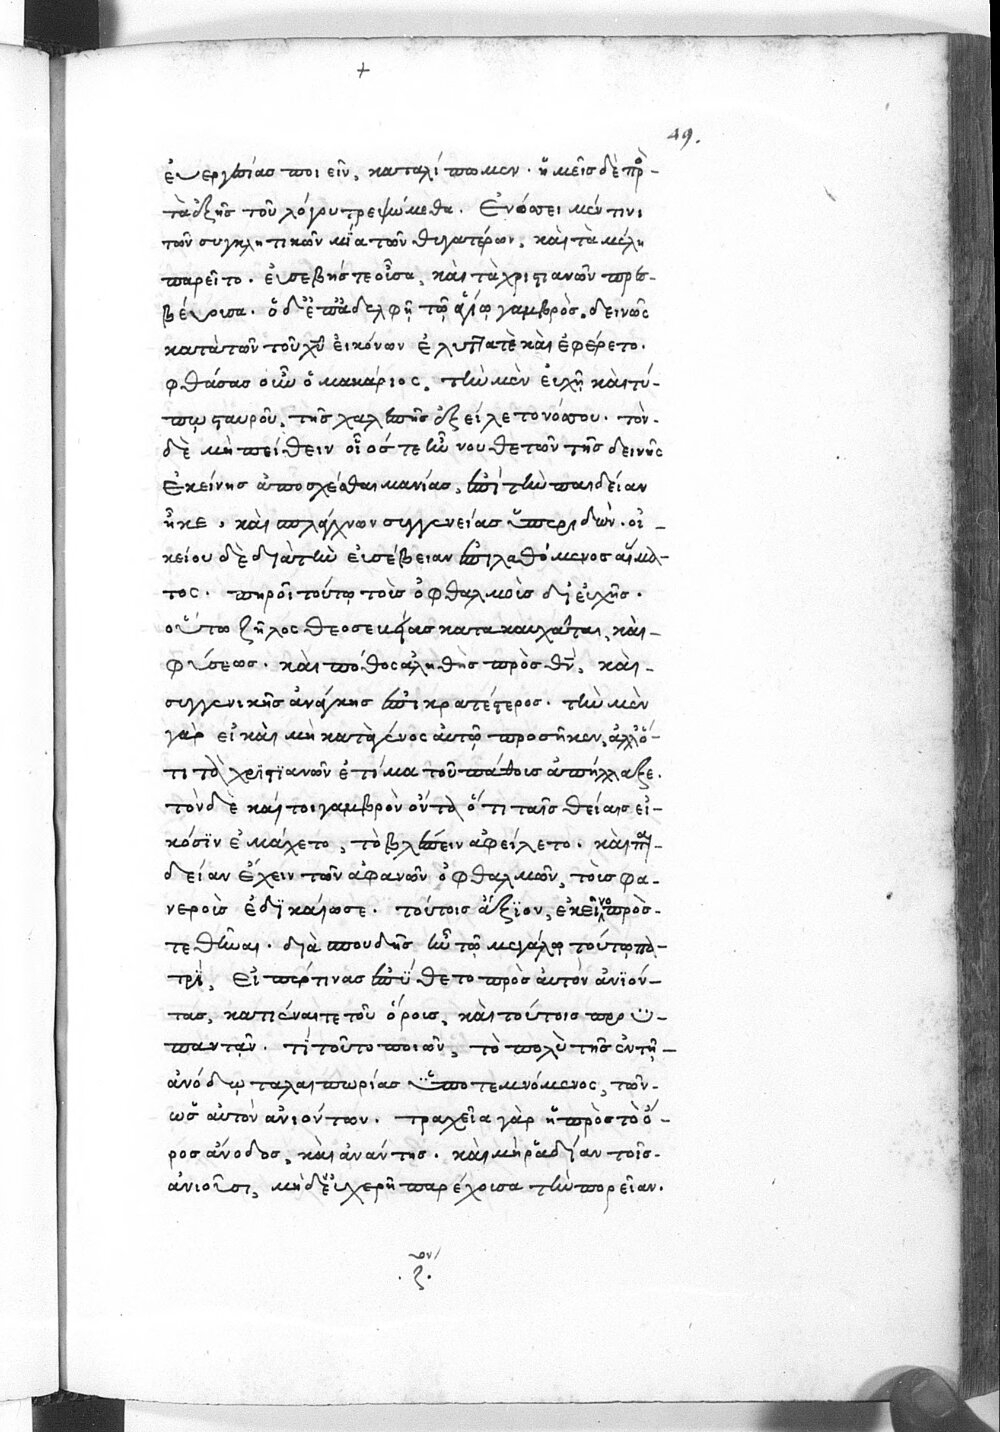 +
49.
εὐεργεσίας ποιεῖν, καταλίπωμεν. ἡμεῖς δὲ πρὸ-
τὰ ἑξῆς τοῦ λόγου τρεψώμεθα. Ἐνόσει μέν τινι
τῶν συγκλητικῶν μία τῶν θυγατέρων, καὶ τὰ μέλη
παρεῖτο. εὐσεβής τε οὖσα, καὶ τὰ χριστιανῶν πρεσ-
βεύουσα. ὁ δὲ ἐπ' ἀδελφῇ τῷ ἁγίῳ γαμβρὸς. δεινῶς
κατὰ τῶν τοῦ χῦ εἰκόνων ἐλυττατε καὶ ἐφέρετο.
φθάσας οὖν ὁ μακάριος, τὴν μὲν εὐχῇ καὶ τύ-
πῳ σταυροῦ, τῆς χαλεπῆς ἐξείλετο νόσου. τὸν-
δὲ μὴ πείθειν οἷος τε ὢν νουθετῶν τῆς δεινῆς
ἐκείνης ἀποσχέσθαι μανίας, ἐπὶ τὴν παιδείαν
ἧκε, καὶ σπλάγχνων συγγενείας ὑπεριδὼν. οἰ-
κείου δὲ διὰ τὴν εὐσέβειαν ἐπιλαθόμενος αἵμα-
τος. πηροῖ τούτῳ τοὶς ὀφθαλμοὶς δι' εὐχῆς.
οὕτω ζῆλος θεοσεβείας κατακαυχᾶται, καὶ-
φύσεως. καὶ πόθος ἀληθὴς πρὸς θν̄, καὶ-
συγγενικῆς ἀνάγκης ἐπικρατέστερος. τὴν μὲν
γὰρ εἰ καὶ μὴ κατὰ γένος αὐτῷ προσῆκεν, ἀλλ' ὅ-
τι τὸ χριστιανῶν ἐτίμα τοῦ πάθους ἀπήλλαξε.
τὸν δὲ καίτοι γαμβρὸν ὄντα ὅτι ταῖς θείαις εἰ-
κόσιν ἐμάχετο, τὸ βλέπειν ἀφείλετο. καὶ παι-
δείαν ἔχειν τῶν ἀφανῶν ὀφθαλμῶν, τοὶς φα-
νεροὶς ἐδικαίωσε. τούτοις ἄξιον, ἐκεῖνο προσ-
τεθῆναι. διὰ σπουδῆς ἦν τῷ μεγάλῳ τούτῳ πα-
τρὶ, εἴπερ τινας ἐπύθετο πρὸς αὐτὸν ἀνϊόν-
τας, κατιέναι τε τοῦ ὄρους, καὶ τούτοις προϋ-
παντᾶν. τί τοῦτο ποιῶν, τὸ πολὺ τῆς ἐν τῇ-
ἀνόδῳ ταλαιπωρίας ὑποτεμνόμενος, τῶν-
ὡς αὐτὸν ἀνιόντων. τραχεῖα γὰρ ἡ πρὸς τὸ ὄ-
ρος ἄνοδος, καὶ ἀνάντης. καὶ μὴ ῥᾳδίαν τοῖς-
ἀνιοῦσι, μὴδ' εὐχερῆ παρέχουσα τὴν πορείαν.
.ζ.